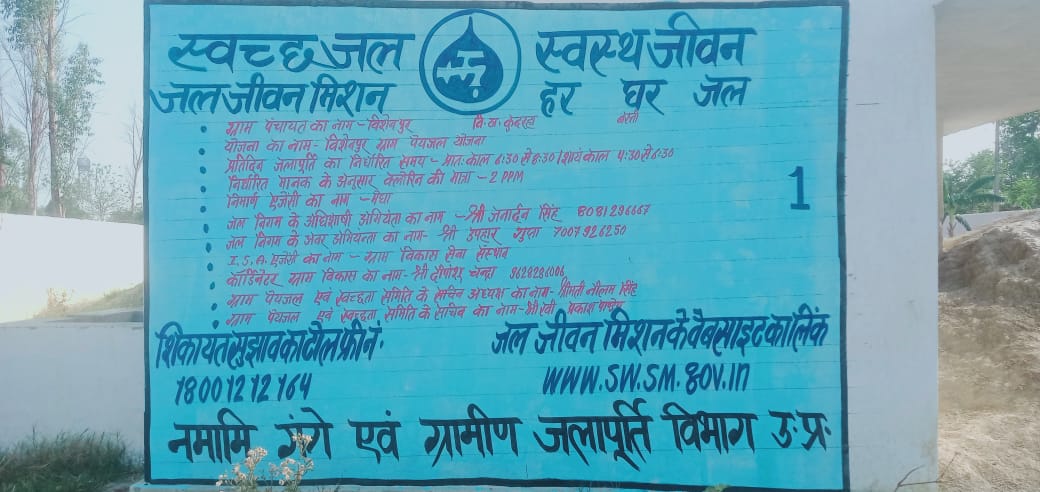 स्वच्छ जल स्वस्थ जीवन
जल जीवन मिशन हर घर जल
ग्राम पंचायत का नाम - विशेनपुर वि.ख. कुदरहा बस्ती
योजना का नाम - विशेनपुर ग्राम पेयजल योजना
प्रतिदिन जलापूर्ति का निर्धारित समय - प्रातः काल 6:30 से 8:30 / शायं काल 4:30 से 6:30
निर्धारित मानक के अनुसार क्लोरिन की मात्रा - 2 PPM
निमार्ण ऐजेंसी का नाम - मेघा
1
जल निगम के अधिशाषी अभियंता का नाम - श्री जनार्दन सिंह 8081296667
जल निगम के अवर अभियन्ता का नाम - श्री उपहार गुप्ता 7007926250
I.S.A. ऐजेंसी का नाम - ग्राम विकास सेवा संस्थान
कॉर्डिनेटर ग्राम विकास का नाम - श्री दीपेश चन्द्रा
ग्राम पेयजल एवं स्वच्छता समिति के सचिव अध्यक्ष का नाम - श्रीमती नीलम सिंह
ग्राम पेयजल एवं स्वच्छता समिति के सचिव का नाम - श्री रवी प्रकाश पाण्डेय
शिकायत सुझाव का टोल फ्री नं. जल जीवन मिशन के वैबसाइट का लिंक
18001212164 WWW.SW.SM.GOV.in
नमामि गंगे एवं ग्रामीण जलापूर्ति विभाग उ. प्र.